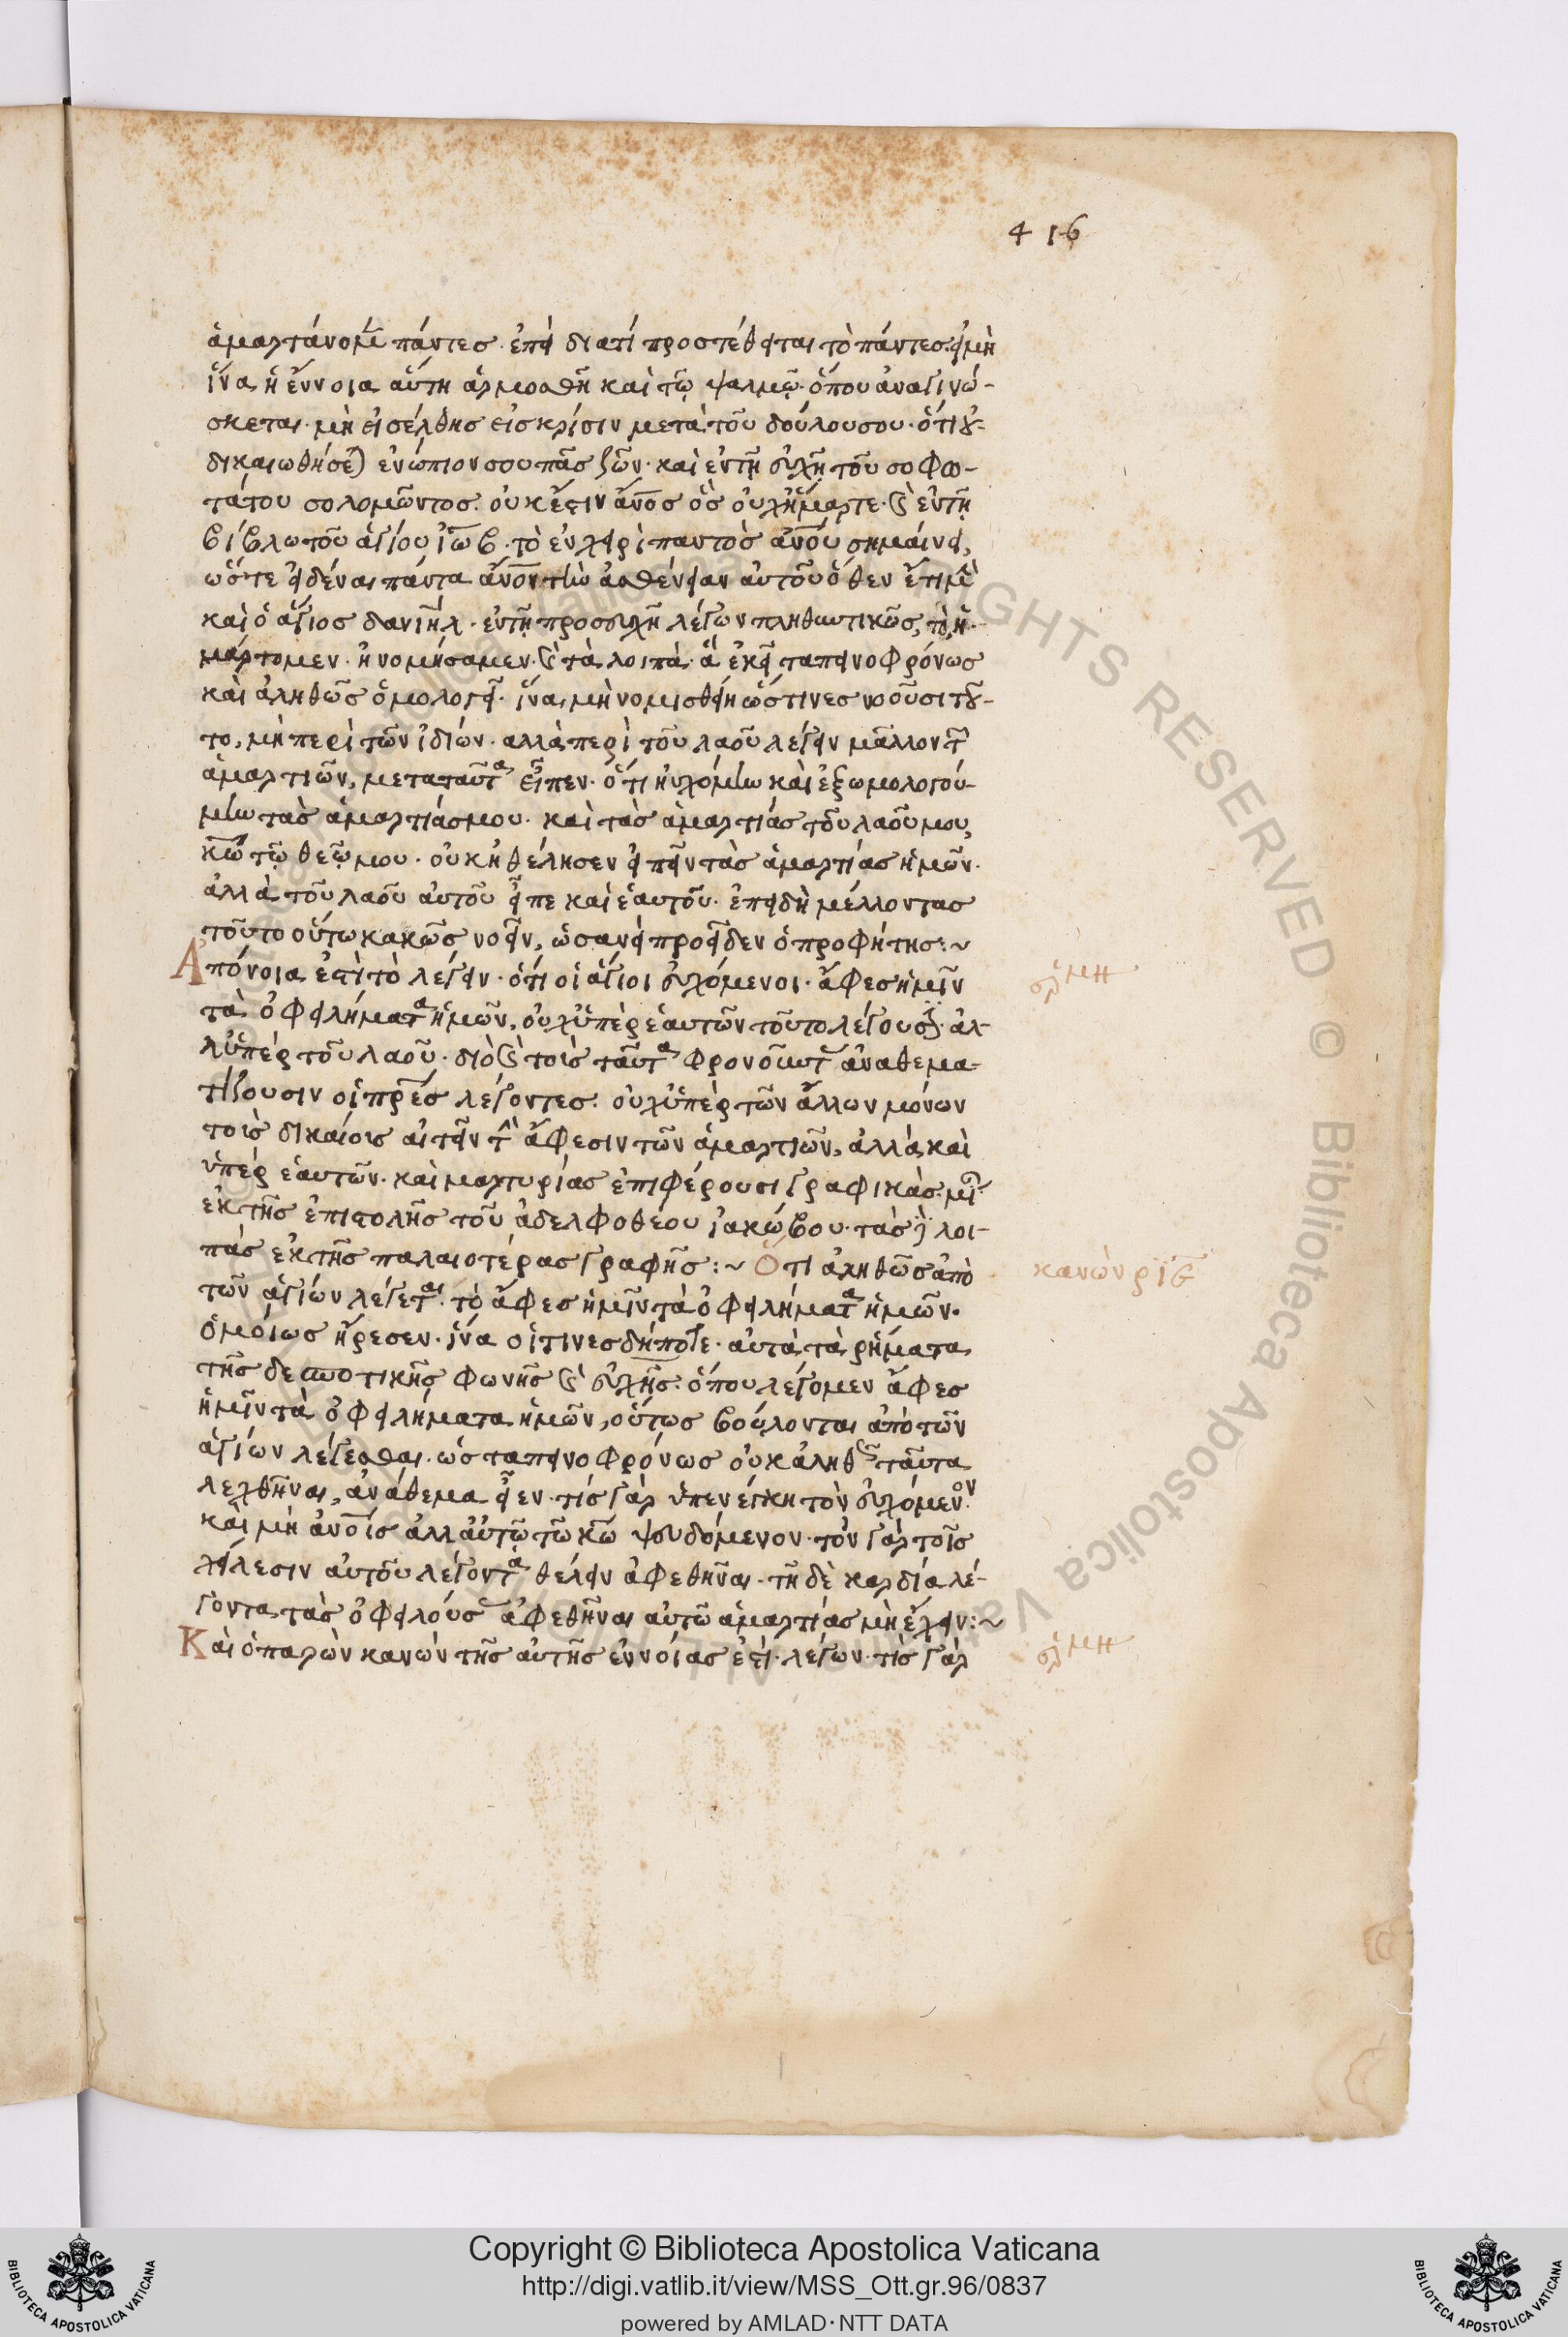 416
ἁμαρτάνομεν πάντες· ἐπεὶ διατί προστέθειται τὸ πάντες· εἰμὴ
ἵνα ἡ ἔννοια αὕτη ἁρμοσθῆ καὶ τῷ ψαλμῷ· ὅπου ἀναγινώ-
σκεται· μὴ εἰσέλθης εἰς κρίσιν μετὰ τοῦ δούλου σου· ὅτι οὐ
δικαιωθήσεται ἐνώπιον σου πᾶς ζῶν· καὶ ἐν τῆ εὐχῆ τοῦ σοφω-
τάτου σολομῶντος· οὐκ ἔστιν ἄνος ὃς οὐχ ἥμαρτε· καὶ ἐν τῆ
βίβλω τοῦ ἁγίου ἰὼβ· τὸ ἐν χειρὶ παντὸς ἀνου σημαίνει,
ὥστε εἰδέναι πάντα ἄνον τὴν ἀσθένειαν αὐτοῦ ὅθεν
καὶ ὁ ἅγιος δανιὴλ· ἐν τῆ προσευχῆ λέγων πληθυντικῶς, τὸ ἡ-
μάρτομεν· ἠνομήσαμεν· καὶ τὰ λοιπὰ· ἃ ἐκεῖ ταπεινοφρόνως
καὶ ἀληθῶς ὁμολογεῖ· ἵνα μὴ νομισθείη ὥς τινες νοοῦσι τοῦ-
το, μὴ περὶ τῶν ἰδίων· ἀλλὰ περὶ τοῦ λαοῦ λέγειν μᾶλλον τῶν
ἁμαρτιῶν, μετὰ ταῦτα εἶπεν· ὅτι ηὐχόμην καὶ ἐξωμολογού-
μην τὰς ἁμαρτίας μου· καὶ τὰς ἁμαρτίας τοῦ λαοῦ μου,
κω τῷ θεῷ μου· οὐκ ἠθέλησεν εἰπεῖν τὰς ἁμαρτίας ἡμῶν·
ἀλλὰ τοῦ λαοῦ αὐτοῦ εἶπε καὶ ἑαυτοῦ· ἐπειδὴ μέλλοντας
τοῦτο οὕτω κακῶς νοεῖν, ὡσανεὶ προεῖδεν ὁ προφήτης:~
Ἀπόνοια ἐστὶ τὸ λέγειν· ὅτι οἱ ἅγιοι εὐχόμενοι· ἄφες ἡμῖν
τὰ ὀφειλήματα ἡμῶν, οὐχ ὑπὲρ ἑαυτῶν τοῦτο λέγουσιν· ἀλ-
λ' ὑπὲρ τοῦ λαοῦ· διὸ καὶ τοὺς ταῦτα φρονοῦντας ἀναθεμα-
τίζουσιν οἱ πρες λέγοντες· οὐχ ὑπὲρ τῶν ἄλλων μόνων
τοὺς δικαίους αἰτεῖν τὴν ἄφεσιν τῶν ἁμαρτιῶν, ἀλλὰ καὶ
ὑπὲρ ἑαυτῶν· καὶ μαρτυρίας ἐπιφέρουσι γραφικάς· μίαν
ἐκ τῆς ἐπιστολῆς τοῦ ἀδελφοθέου ἰακώβου· τὰς δὲ λοι-
πὰς ἐκ τῆς παλαιοτέρας γραφῆς:~ Ὅτι ἀληθῶς ἀπὸ
τῶν ἁγίων λέγεται· τὸ ἄφες ἡμῖν τὰ ὀφειλήματα ἡμῶν·
ὁμοίως ἤρεσεν· ἵνα οἵτινες δήποτε· αὐτὰ τὰ ρήματα
τῆς δεσποτικῆς φωνῆς καὶ εὐχῆς· ὅπου λέγομεν ἄφες
ἡμῖν τὰ ὀφειλήματα ἡμῶν, οὕτως βούλονται ἀπὸ τῶν
ἁγίων λέγεσθαι· ὡς ταπεινοφρόνως οὐκ ἀληθῶς ταῦτα
λεχθῆναι, ἀνάθεμα εἶεν· τίς γὰρ ὑπενέγκη τὸν εὐχόμενον·
καὶ μὴ ἀνοις ἀλλ αὐτῷ τῷ κω ψευδόμενον· τὸν γὰρ τοῖς
χείλεσιν αὐτοῦ λέγοντα θέλειν ἀφεθῆναι· τῆ δὲ καρδία λέ-
γοντα τὰς ὀφειλούσας ἀφεθῆναι αὐτῶ ἁμαρτίας μὴ ἔχειν:~
Καὶ ὁ παρὼν κανὼν τῆς αὐτῆς ἐννοίας ἐστί· λέγων· τίς γὰρ
κανὼν ριϛ